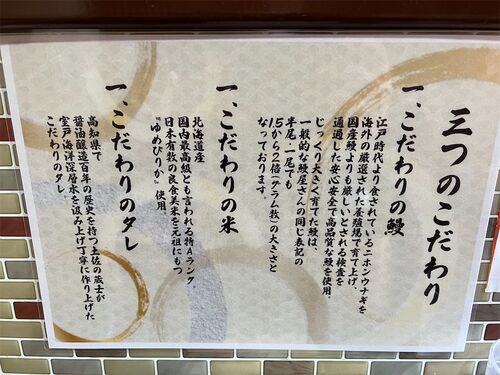 三つのこだわり
一、こだわりの鰻
江戸時代より食されているニホンウナギを
海外の厳選された養殖場で育て上げ、
国産鰻よりも厳しいとされる検査を
通過した安心安全で高品質な鰻を使用。
じっくり大きく育てた鰻は、
一般的な鰻屋さんの同じ表記の
半尾・一尾でも
1.5から2倍(グラム数)の大きさと
なっております。
一、こだわりの米
北海道産
国内最高級とも言われる特Aランク
日本有数の良食美米を元祖にもつ
"ゆめぴりか"使用
一、こだわりのタレ
高知県で
醤油醸造百年の歴史を持つ土佐の蔵士が
室戸海洋深層水を汲み上げ丁寧に作り上げた
こだわりのタレ。